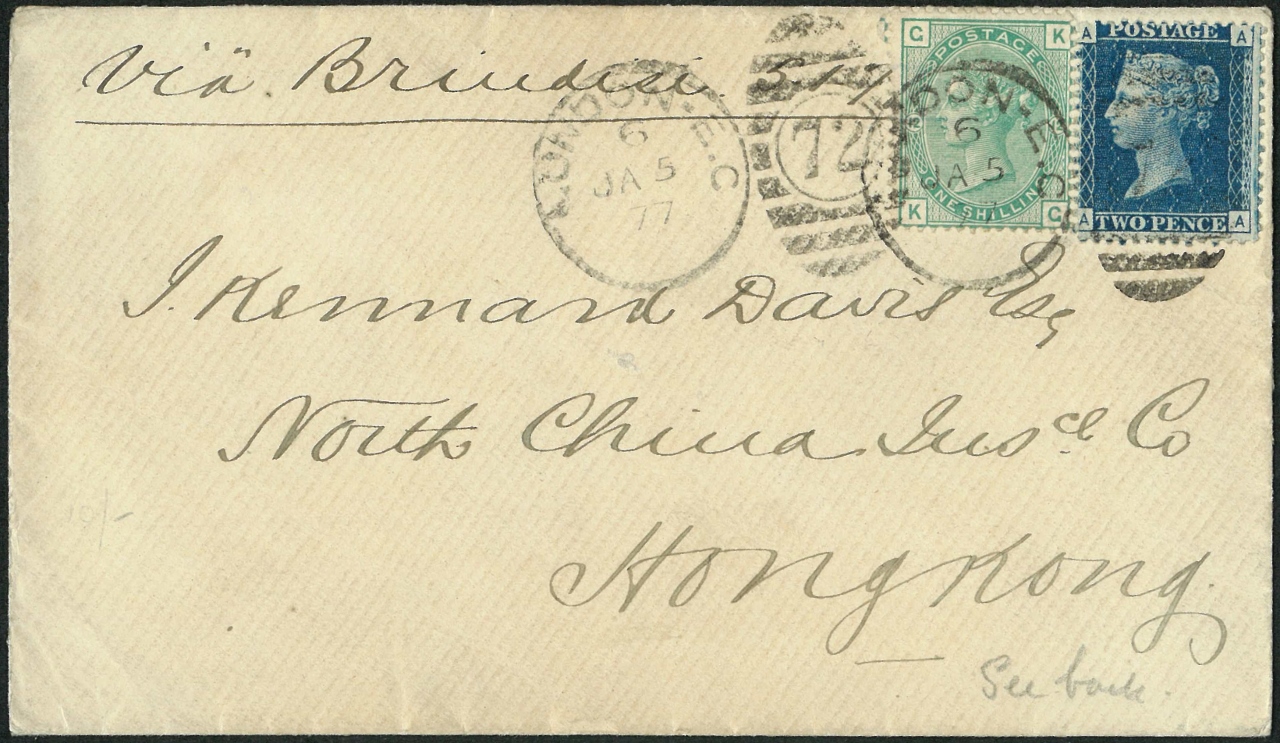 Viâ Brindisi 5/1/77
G K
POSTAGE
ONE SHILLING
K G
A POSTAGE A
A TWO PENCE A
LONDON.E.C
6
JA 5
77
72
LONDON.E.C
6
JA 5
77
J. Kennard Davis Esq
North China Insce Co
Hong Kong
10/-
See back.